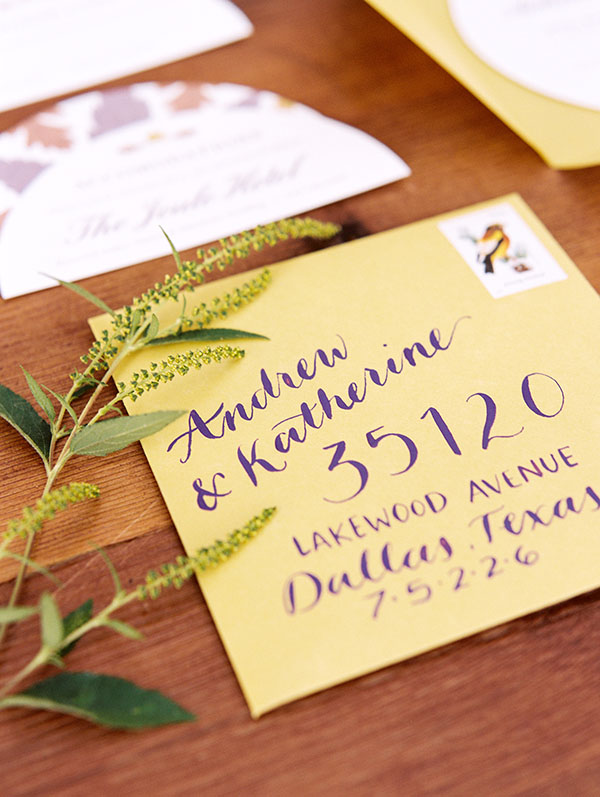 The Joule Hotel
Andrew
& Katherine
35120
LAKEWOOD AVENUE
Dallas, Texas
7·5·2·2·6